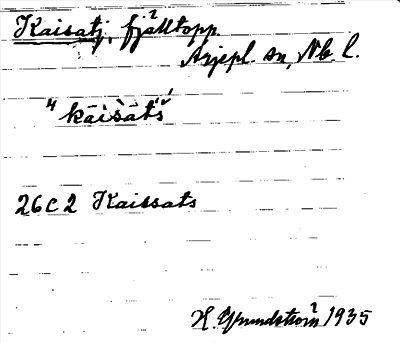 Kaisatj, fjälltopp.
Arjepl. sn, Nb. l.
"kaisats
26C2 Kaissats
H. Grundström 1935